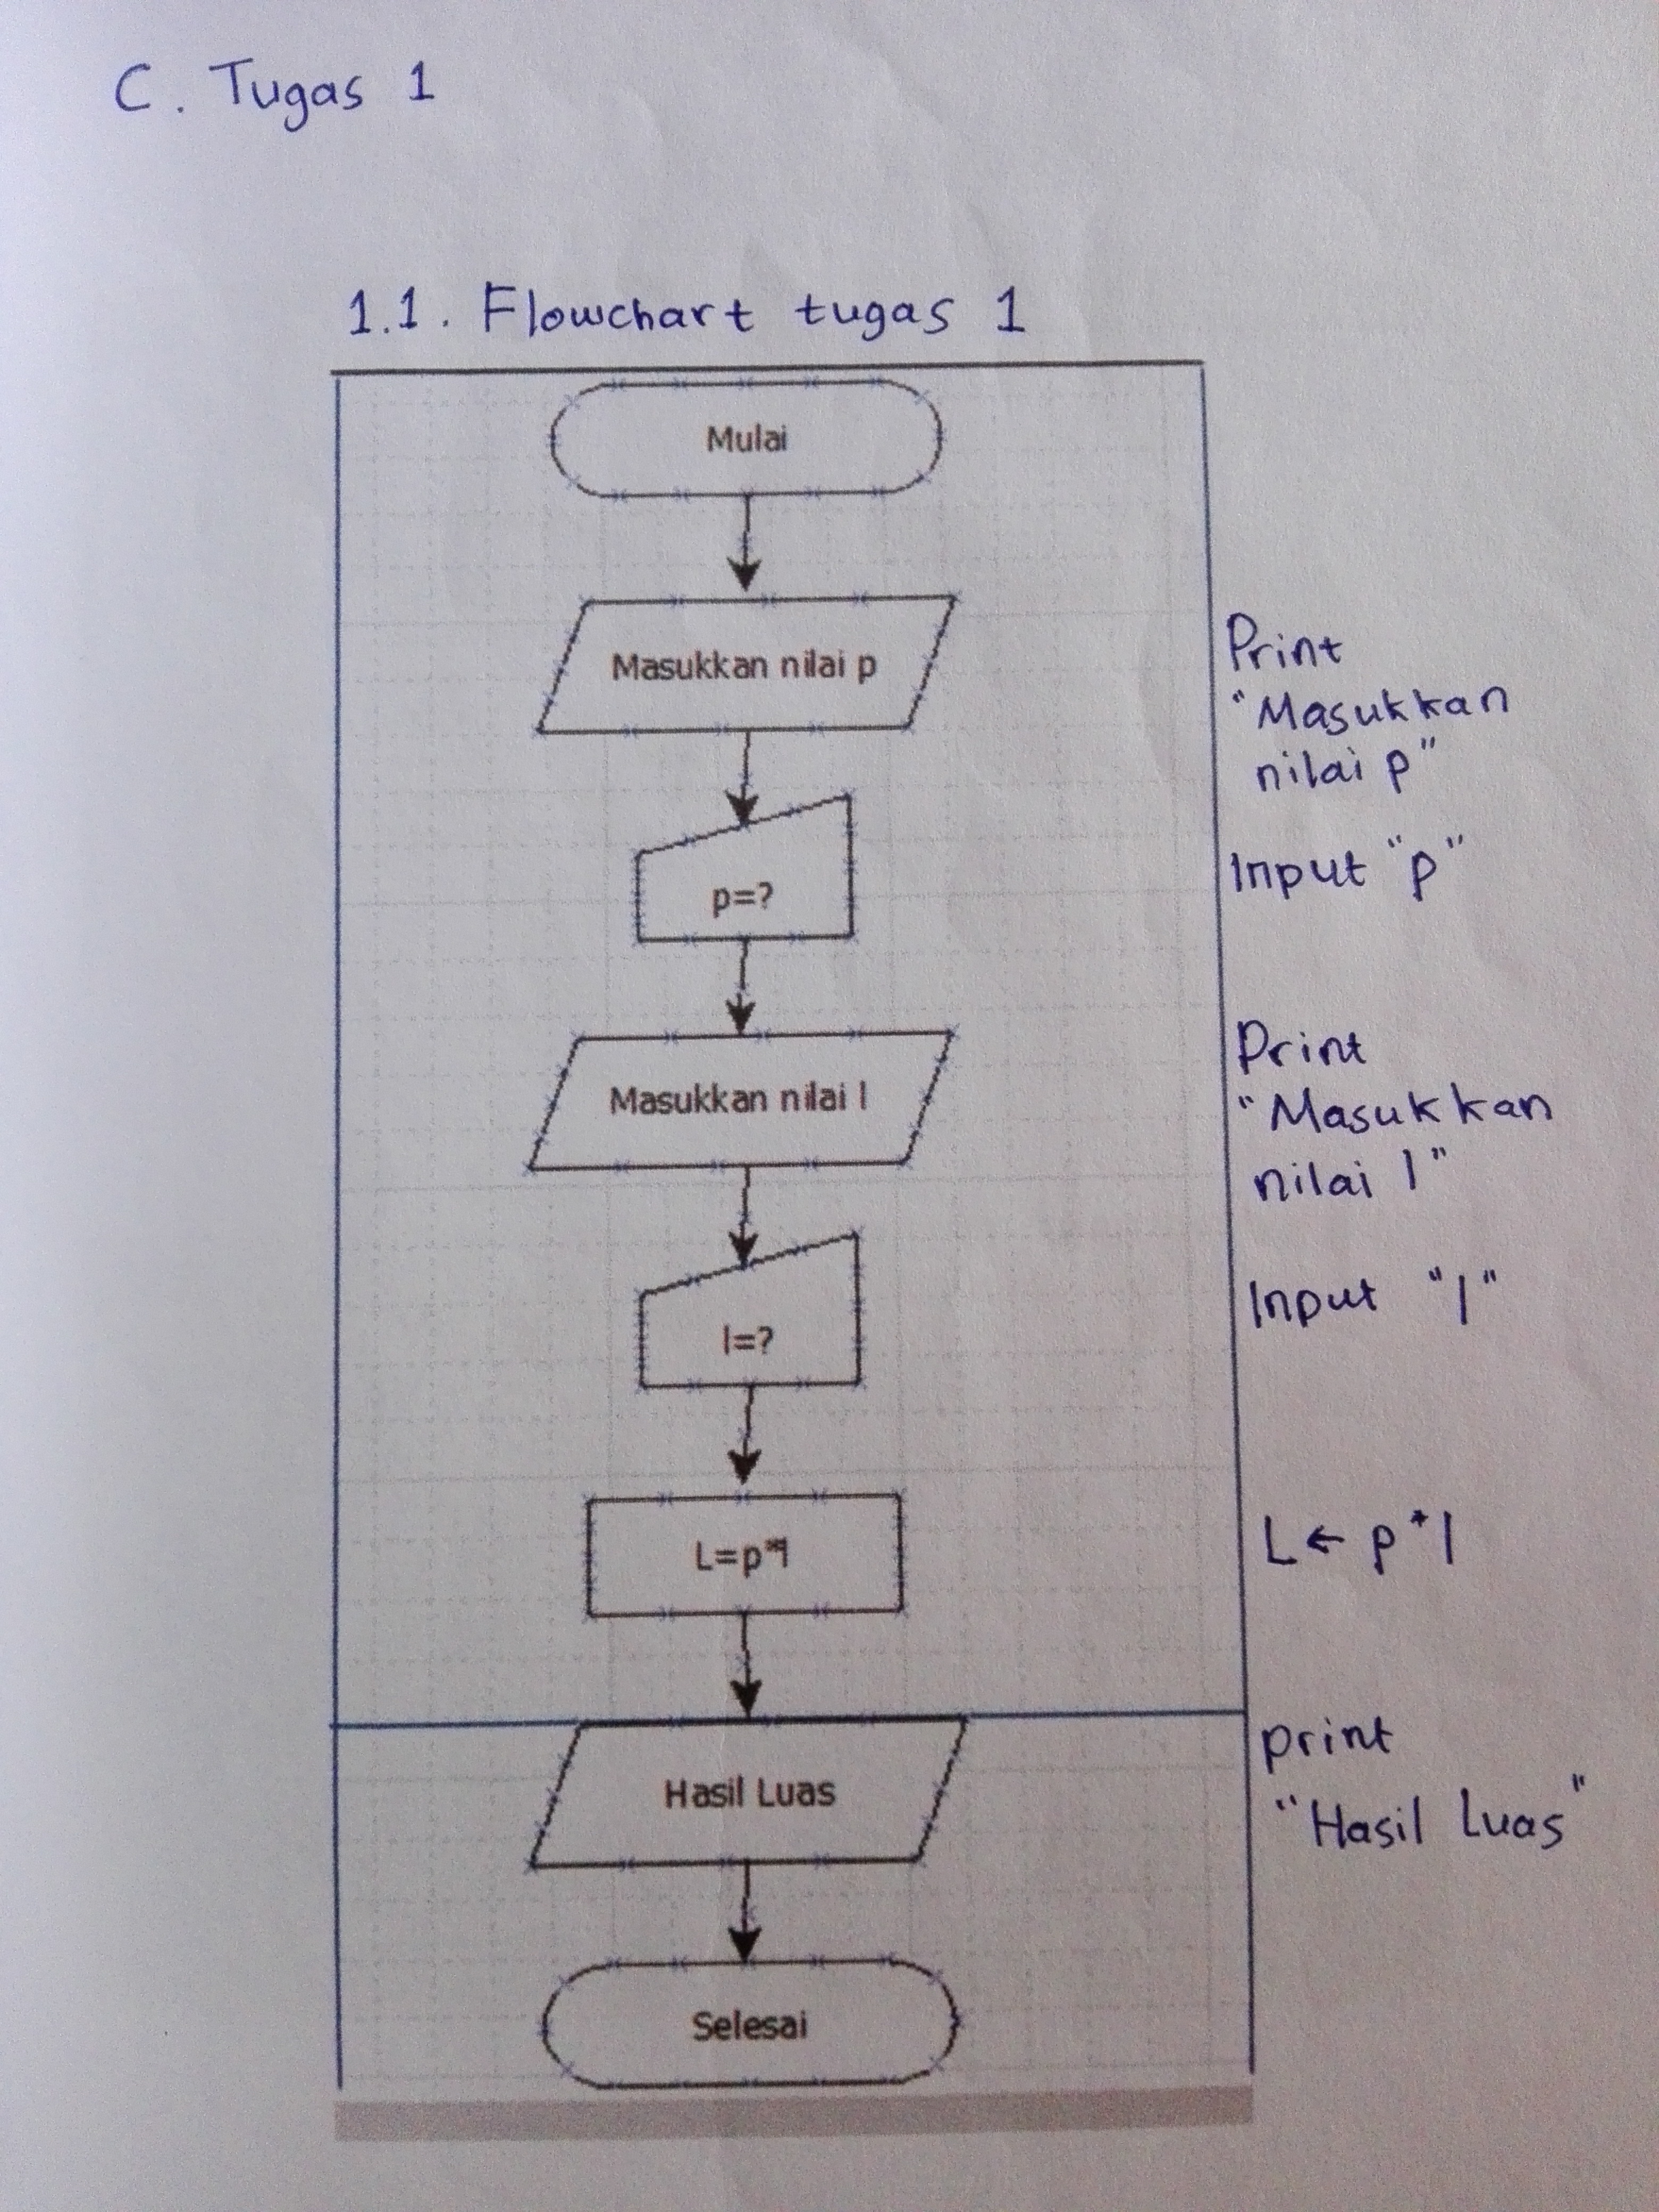 C. Tugas 1
1.1. Flowchart tugas 1
Mulai
Masukkan nilai p
Print
"Masukkan
nilai p"
p=?
Input "p"
Masukkan nilai l
Print
"Masukkan
nilai l"
l=?
Input "l"
L=p*l
L ← p * l
Hasil Luas
print
"Hasil Luas"
Selesai